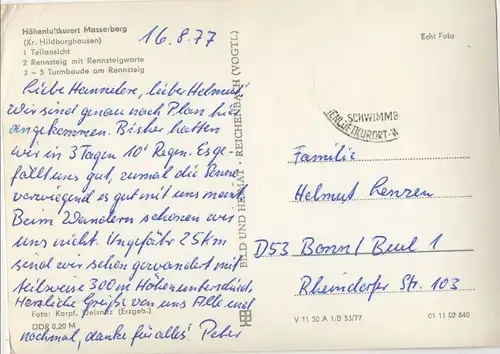 Höhenluftkurort Masserberg
(Kr. Hildburghausen)
1 Teilansicht
2 Rennsteig mit Rennsteigwarte
3 – 5 Turmbaude am Rennsteig
16.8.77
Liebe Hannelore, lieber Helmut
Wir sind genau nach Plan hier
angekommen. Bisher hatten
wir in 3 Tagen 10' Regen. Es ge-
fällt uns gut, zumal die Sonne
vorwiegend es gut mit uns meint
Beim Wandern schonen wir
uns nicht. Ungefähr 25 km
sind wir schon gewandert mit
teilweise 300 m Höhenunterschied.
Herzliche Grüße von uns Alle und
nochmal, danke für alles! Peter
Foto: Karpf, Oelsnitz (Erzgeb.)
DDR 0,20 M
BILD UND HEIMAT · REICHENBACH (VOGTL)
Echt Foto
SCHWIMMB
ENLUFTKURORT-M
Familie
Helmut Lenzen
D53 Bonn / Beul 1
Rheindorfer Str. 103
V 11 50 A 1/B 53/77
01 11 02 640